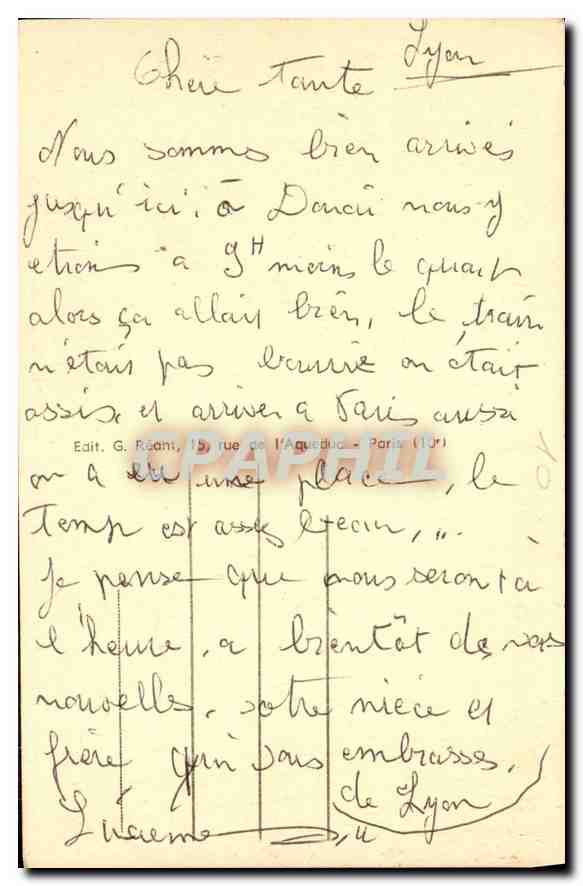 Lyon
Chère tante
Nous sommes bien arrivés
jusqu'ici, à Douai nous y
etions à 9H moins le quart
alors ça allait bien, le train
n'était pas bourré on était
assis, et arriver a Paris aussi
Edit. G. Réant, 15, rue de l'Aqueduc - Paris (10e)
CPAPHIL
on a eu une place, le
temp est assez beau,
je pense que nous seront à
l'heure, a bientôt de vos
nouvelles, votre nièce et
frère qui vous embrasses,
de Lyon